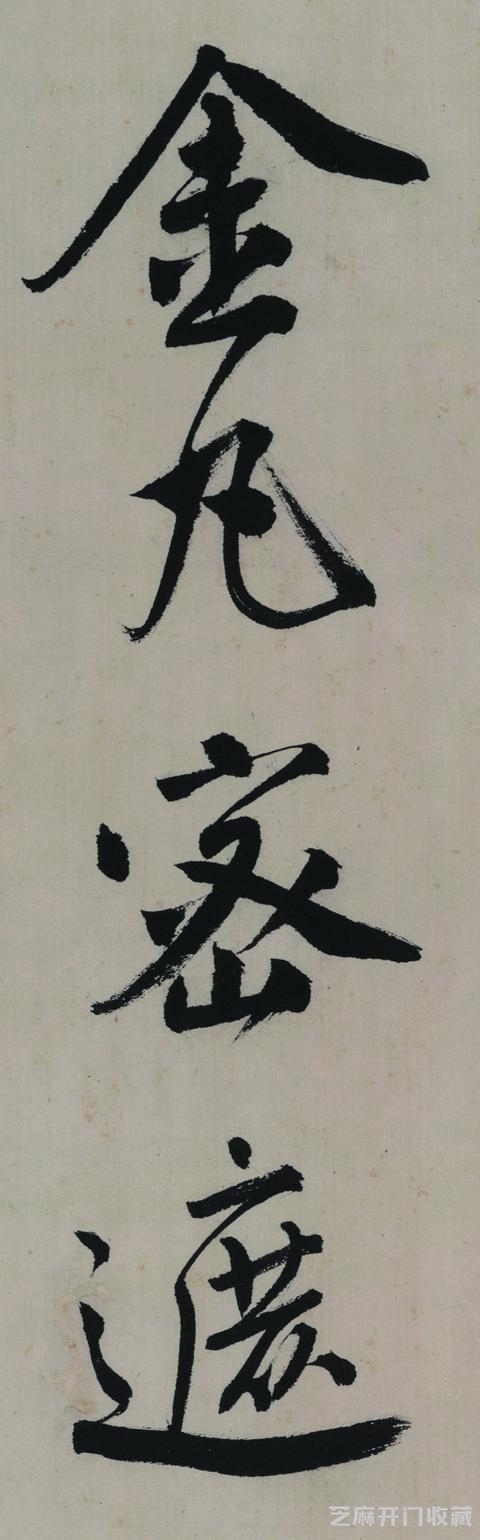 金丸密遮
芝麻开门收藏